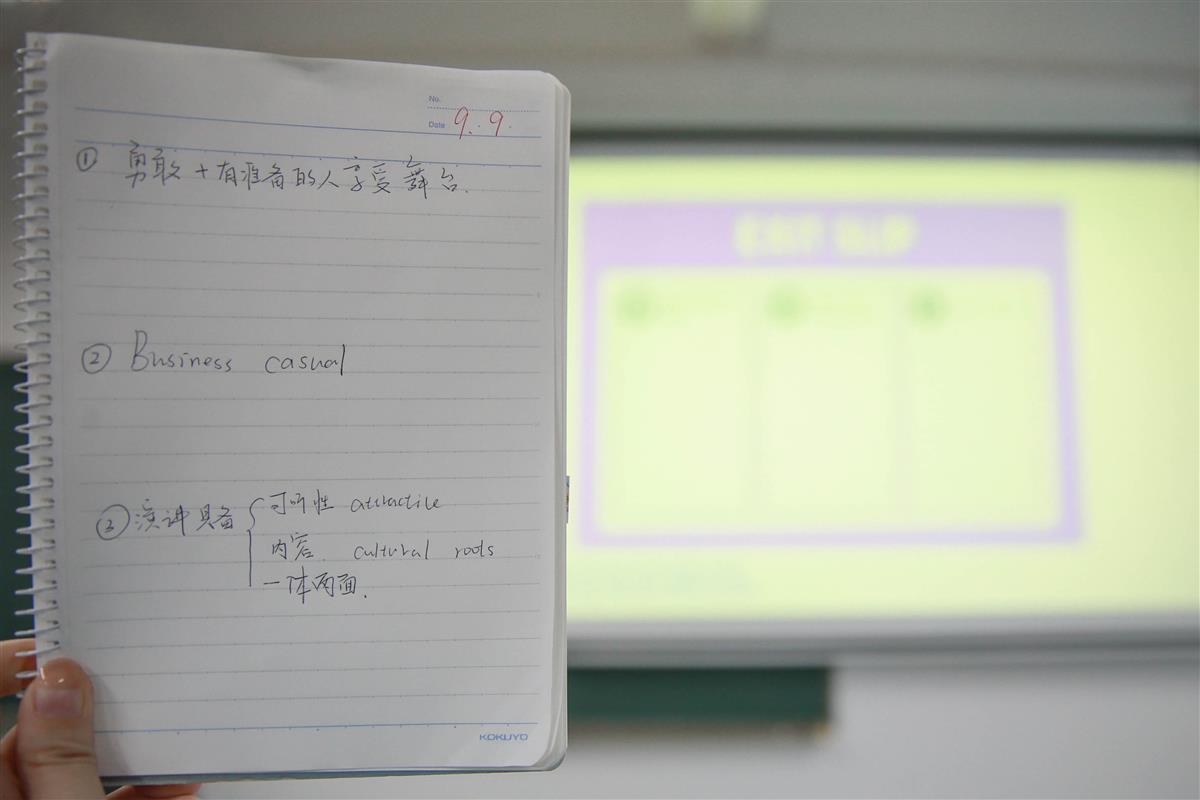 No.
Date 9.9.
① 勇敢+有准备的人享受舞台.
② Business casual
③ 演讲具备 { 可听性 attractive
内容. cultural roots
一体两面.
KOKUYO
EXIT SLIP